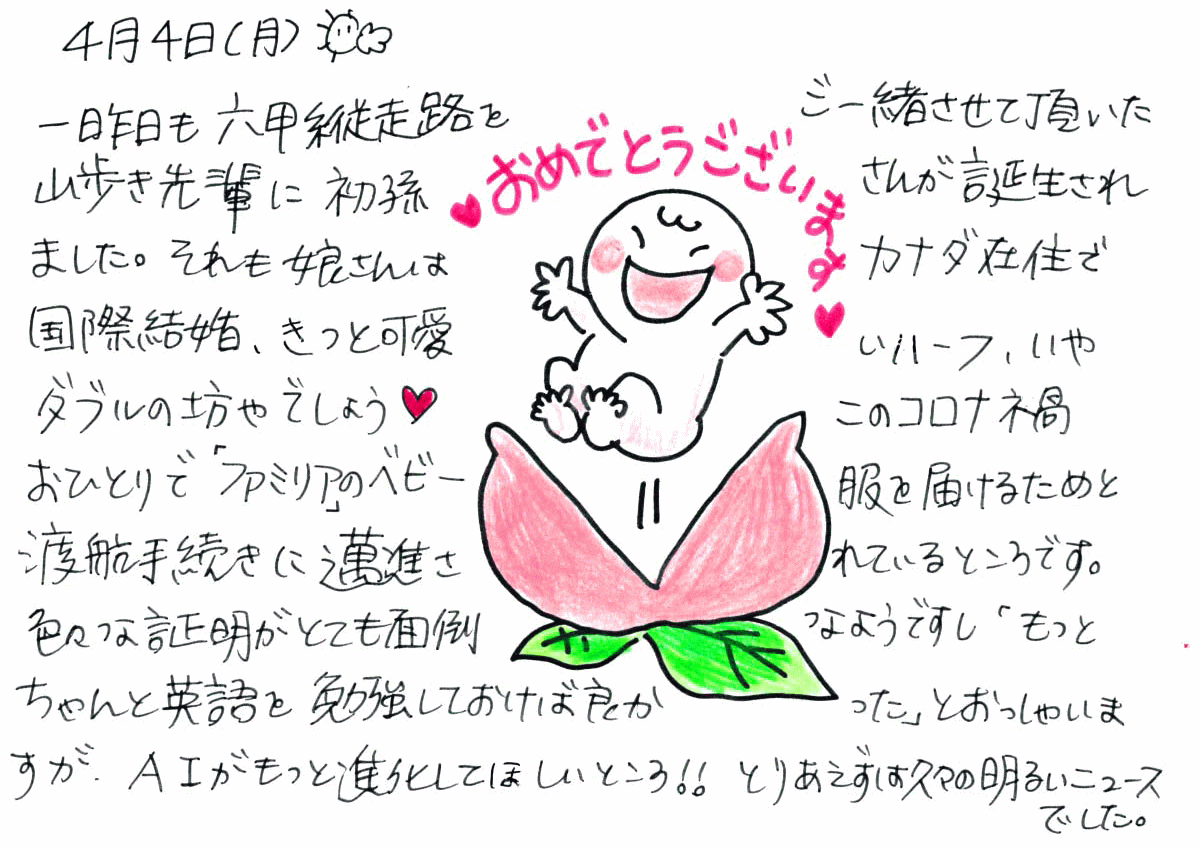 4月4日(月)
おめでとうございます
一昨日も六甲縦走路をご一緒させて頂いた
山歩き先輩に初孫さんが誕生され
ました。それも娘さんはカナダ在住で
国際結婚、きっと可愛いハーフ、いや
ダブルの坊やでしょう♥このコロナ禍
おひとりで「ファミリア」のベビー服を届けるためと
渡航手続きに邁進されているところです。
色々な証明がとても面倒なようですし「もっと
ちゃんと英語を勉強しておけば良かった」とおっしゃいま
すが、AIがもっと進化してほしいところ!! とりあえずは久々の明るいニュース
でした。